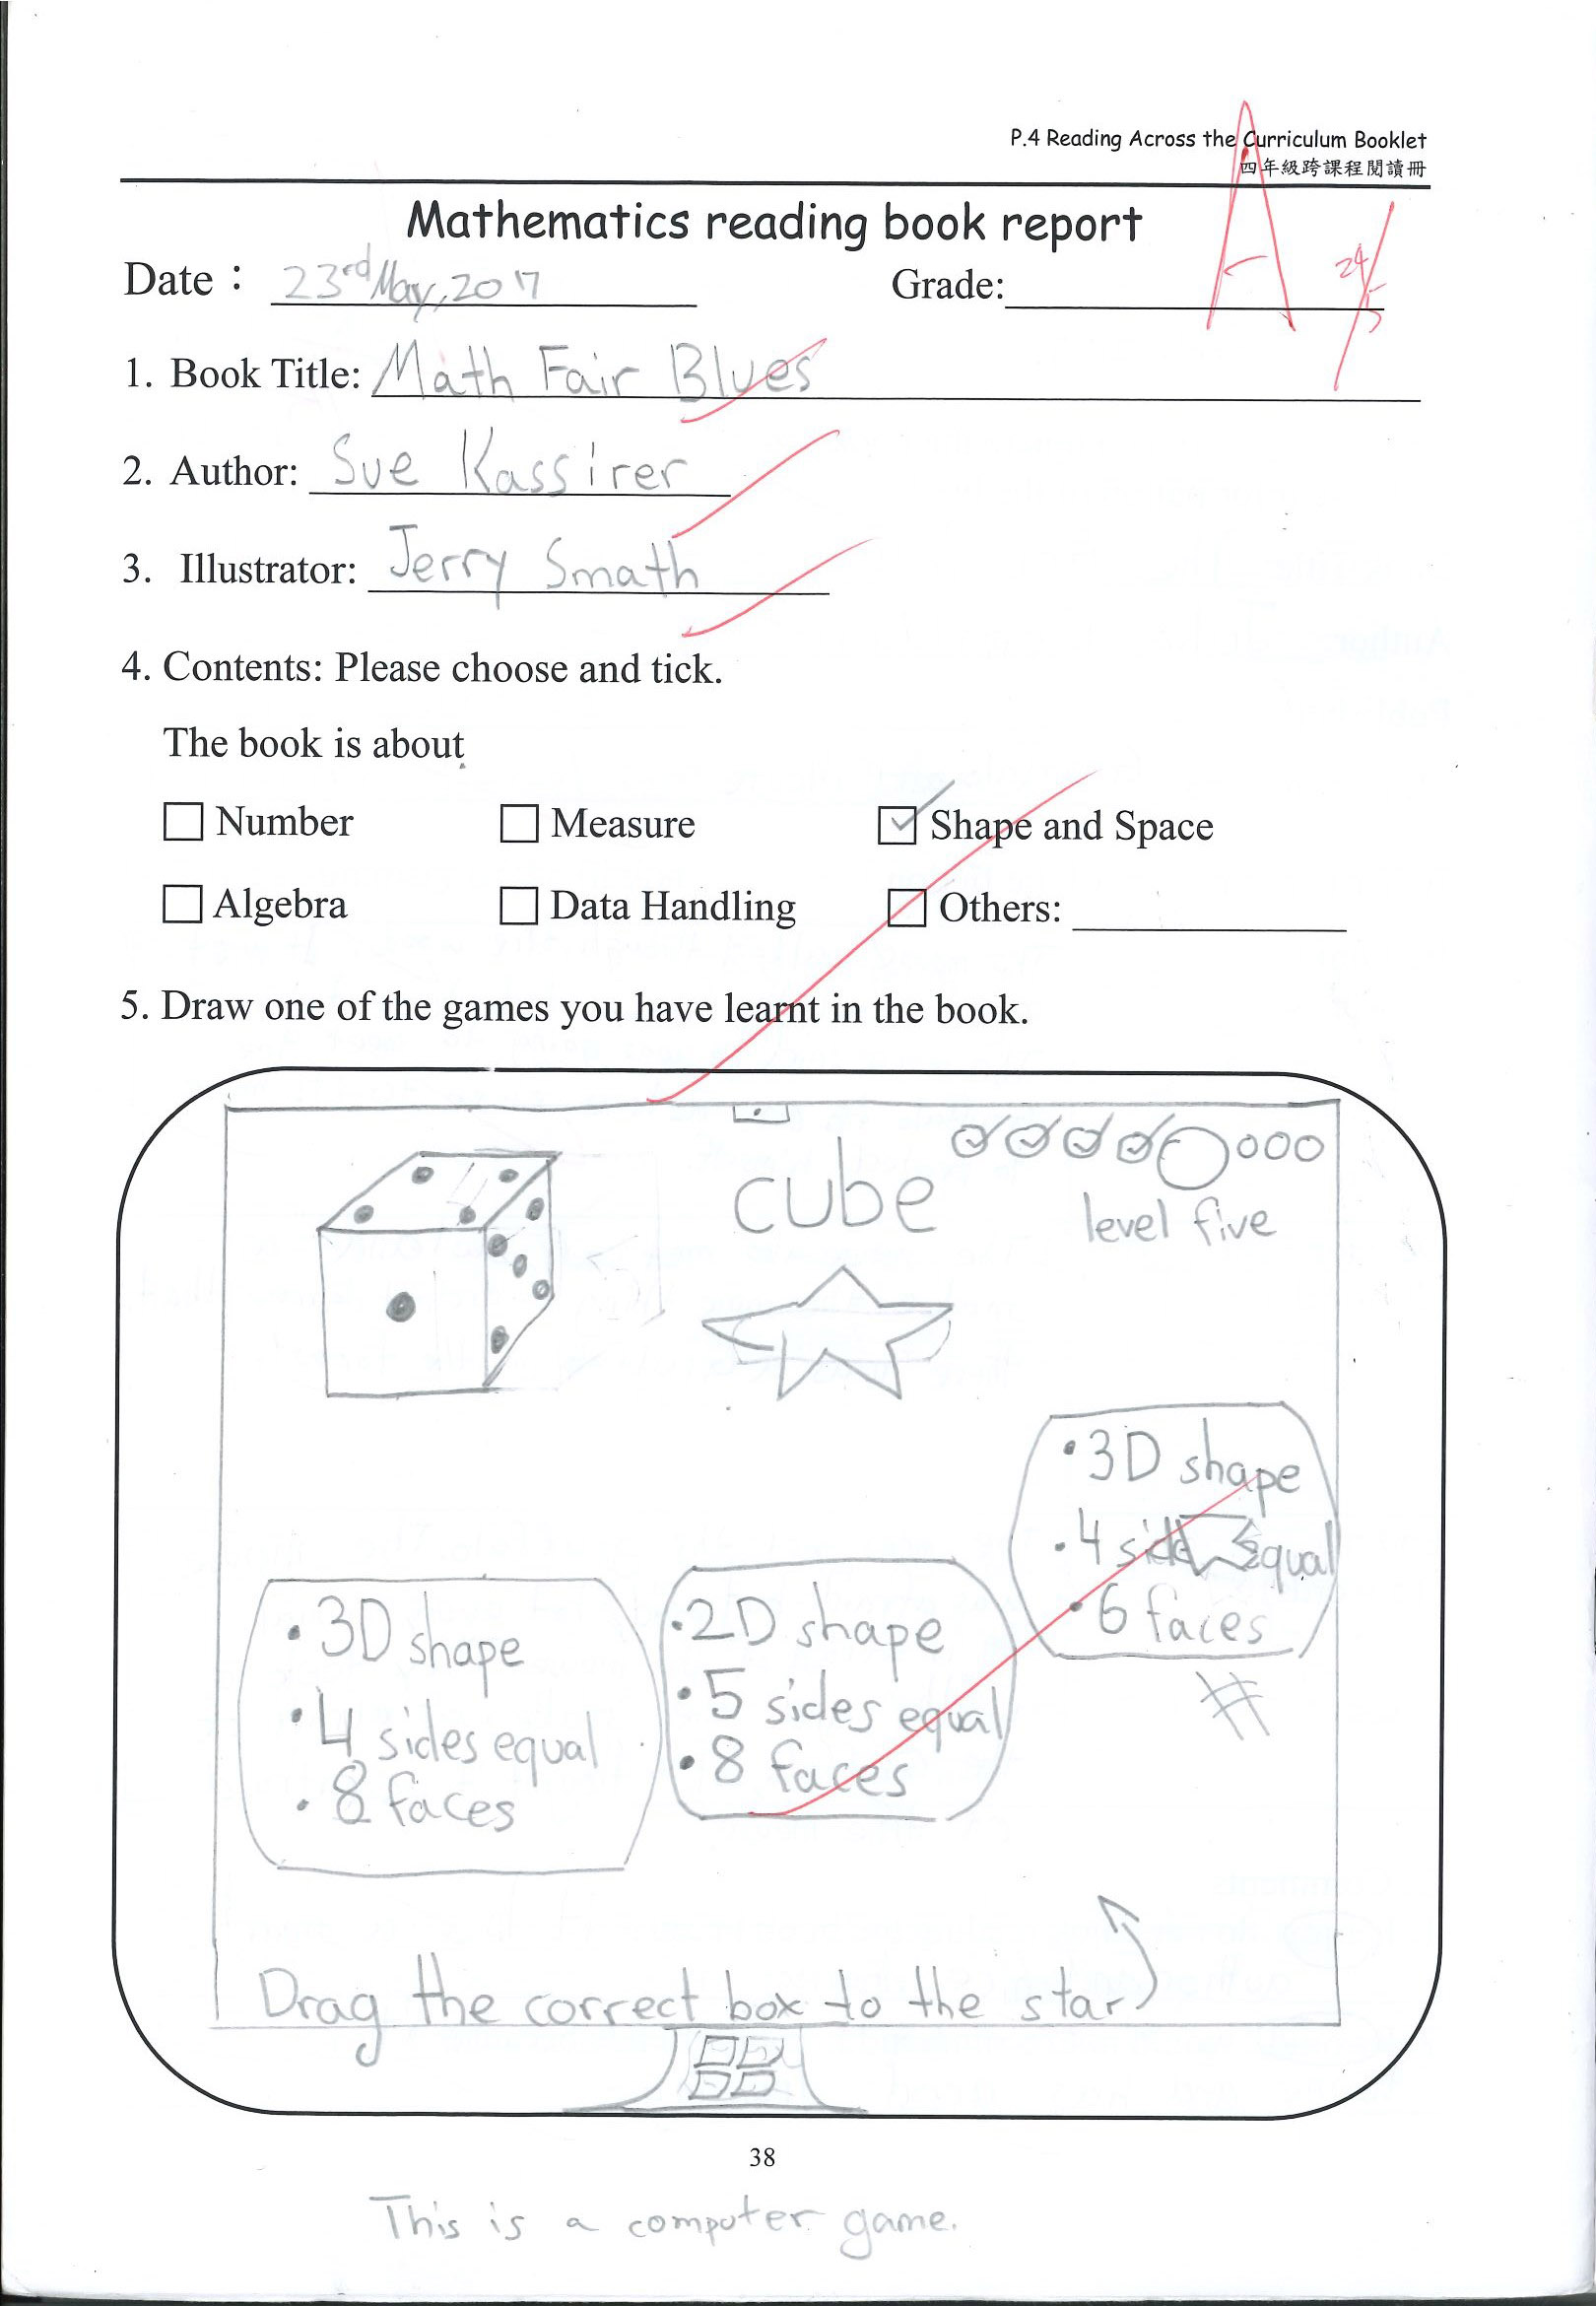 P.4 Reading Across the Curriculum Booklet
四年級跨課程閱讀冊
Mathematics reading book report
Date： 23rd May, 2017 Grade: A
24/5
1. Book Title: Math Fair Blues
2. Author: Sue Kassirer
3. Illustrator: Jerry Smath
4. Contents: Please choose and tick.
The book is about
Number Measure Shape and Space
Algebra Data Handling Others:
5. Draw one of the games you have learnt in the book.
cube
level five
• 3D shape
• 4 side equal
• 6 faces
• 3D shape
• 4 sides equal
• 8 faces
• 2D shape
• 5 sides equal
• 8 faces
Drag the correct box to the star
38
This is a computer game.